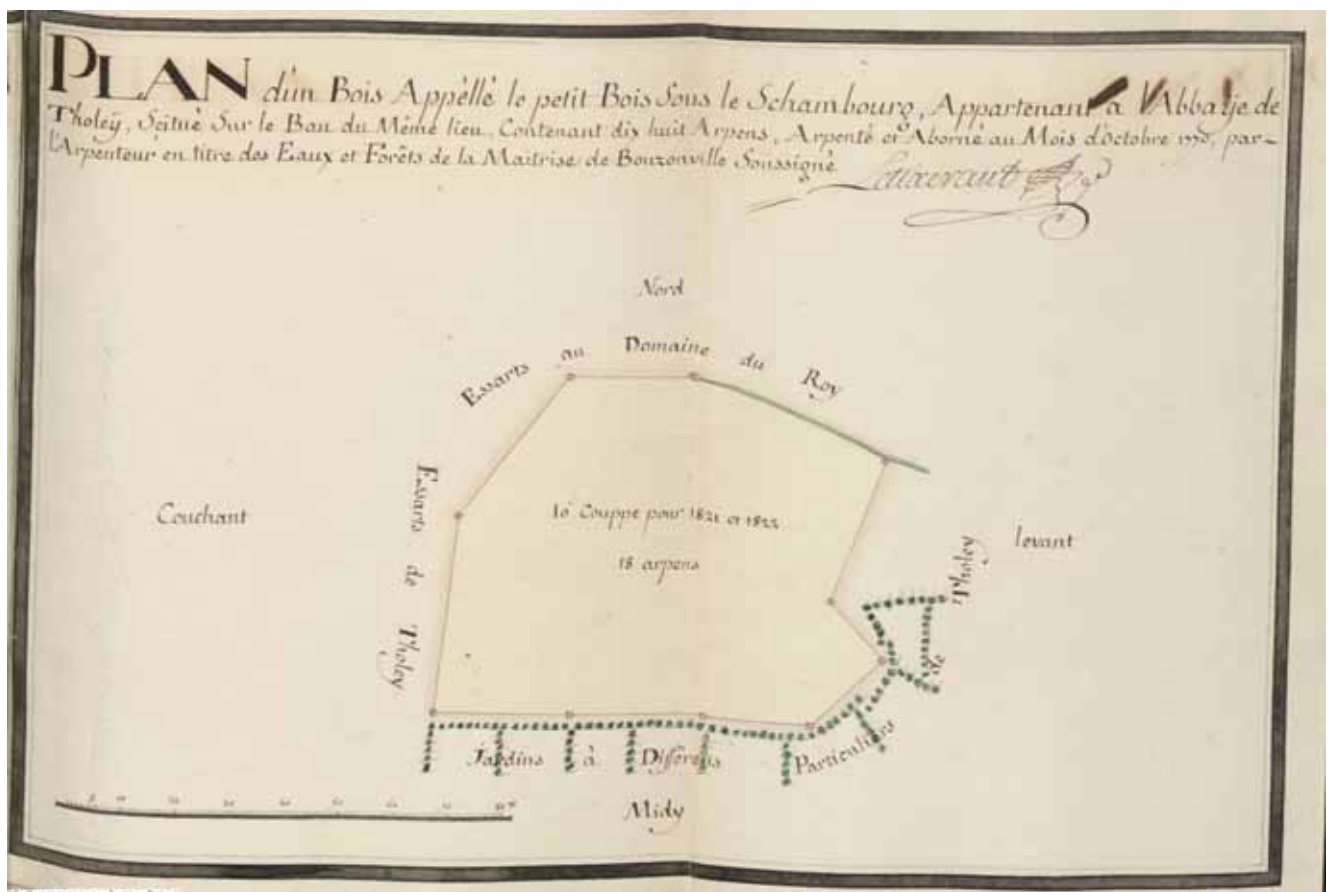 PLAN d'un Bois Appèllé le petit Bois Sous le Schambourg, Appartenant a l'Abbaÿe de
Tholeÿ, Scitué Sur le Ban du Même lieu, Contenant dix huit Arpens, Arpenté et Aborné au Mois d'octobre par-
l'Arpenteur en titre des Eaux et Forêts de la Maitrise de Bouzonville Soussigné
Nord
Essarts au Domaine du Roy
Essarts de Tholey
Couchant
10e Couppe pour 1821 et 1822
18 arpens
levant
Jardins à Differens Particuliers de Tholey
Midy